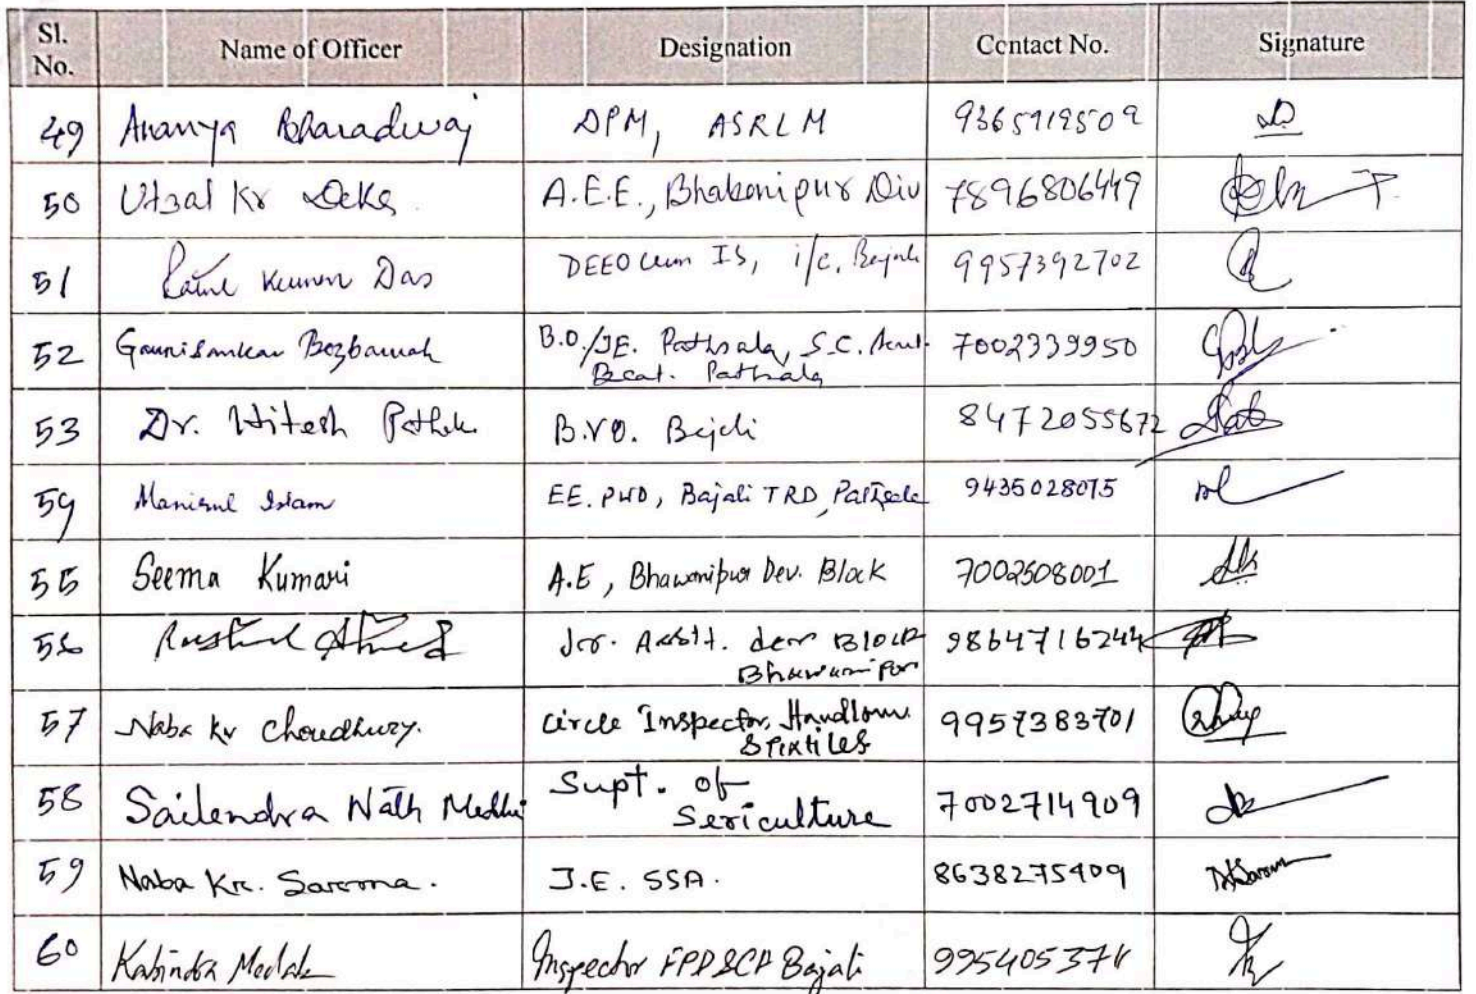 Sl. No. Name of Officer Designation Contact No. Signature
49 Ananya Bharadwaj DPM, ASRLM 9365919509
50 Utpal Kr Deka A.E.E., Bhabanipur Div 7896806449
51 Kumar Das DEEO cum IS, i/c, Bajali 9957392702
52 Gaurisankar Bozbaruah B.O./JE. Pathsala, S.C. 7002339950
Pathsala
53 Dr. Hitesh Pathak B.VO. Bajali 8472055672
54 Manirul Islam EE. PWD, Bajali TRD, Pathsala 9435028015
55 Seema Kumari A.E, Bhawanipur Dev. Block 7002508001
56 Ahmed Jr. Asstt. dev Block
Bhawanipur
57 Naba Kr Choudhury. circle Inspector, Handloom 9957383701
& Textiles
58 Sailendra Nath Medhi Supt. of 7002714909
Sericulture
59 Naba Kr. Sarma. J.E. SSA. 8638275909
60 Inspector FPDSCA Bajali